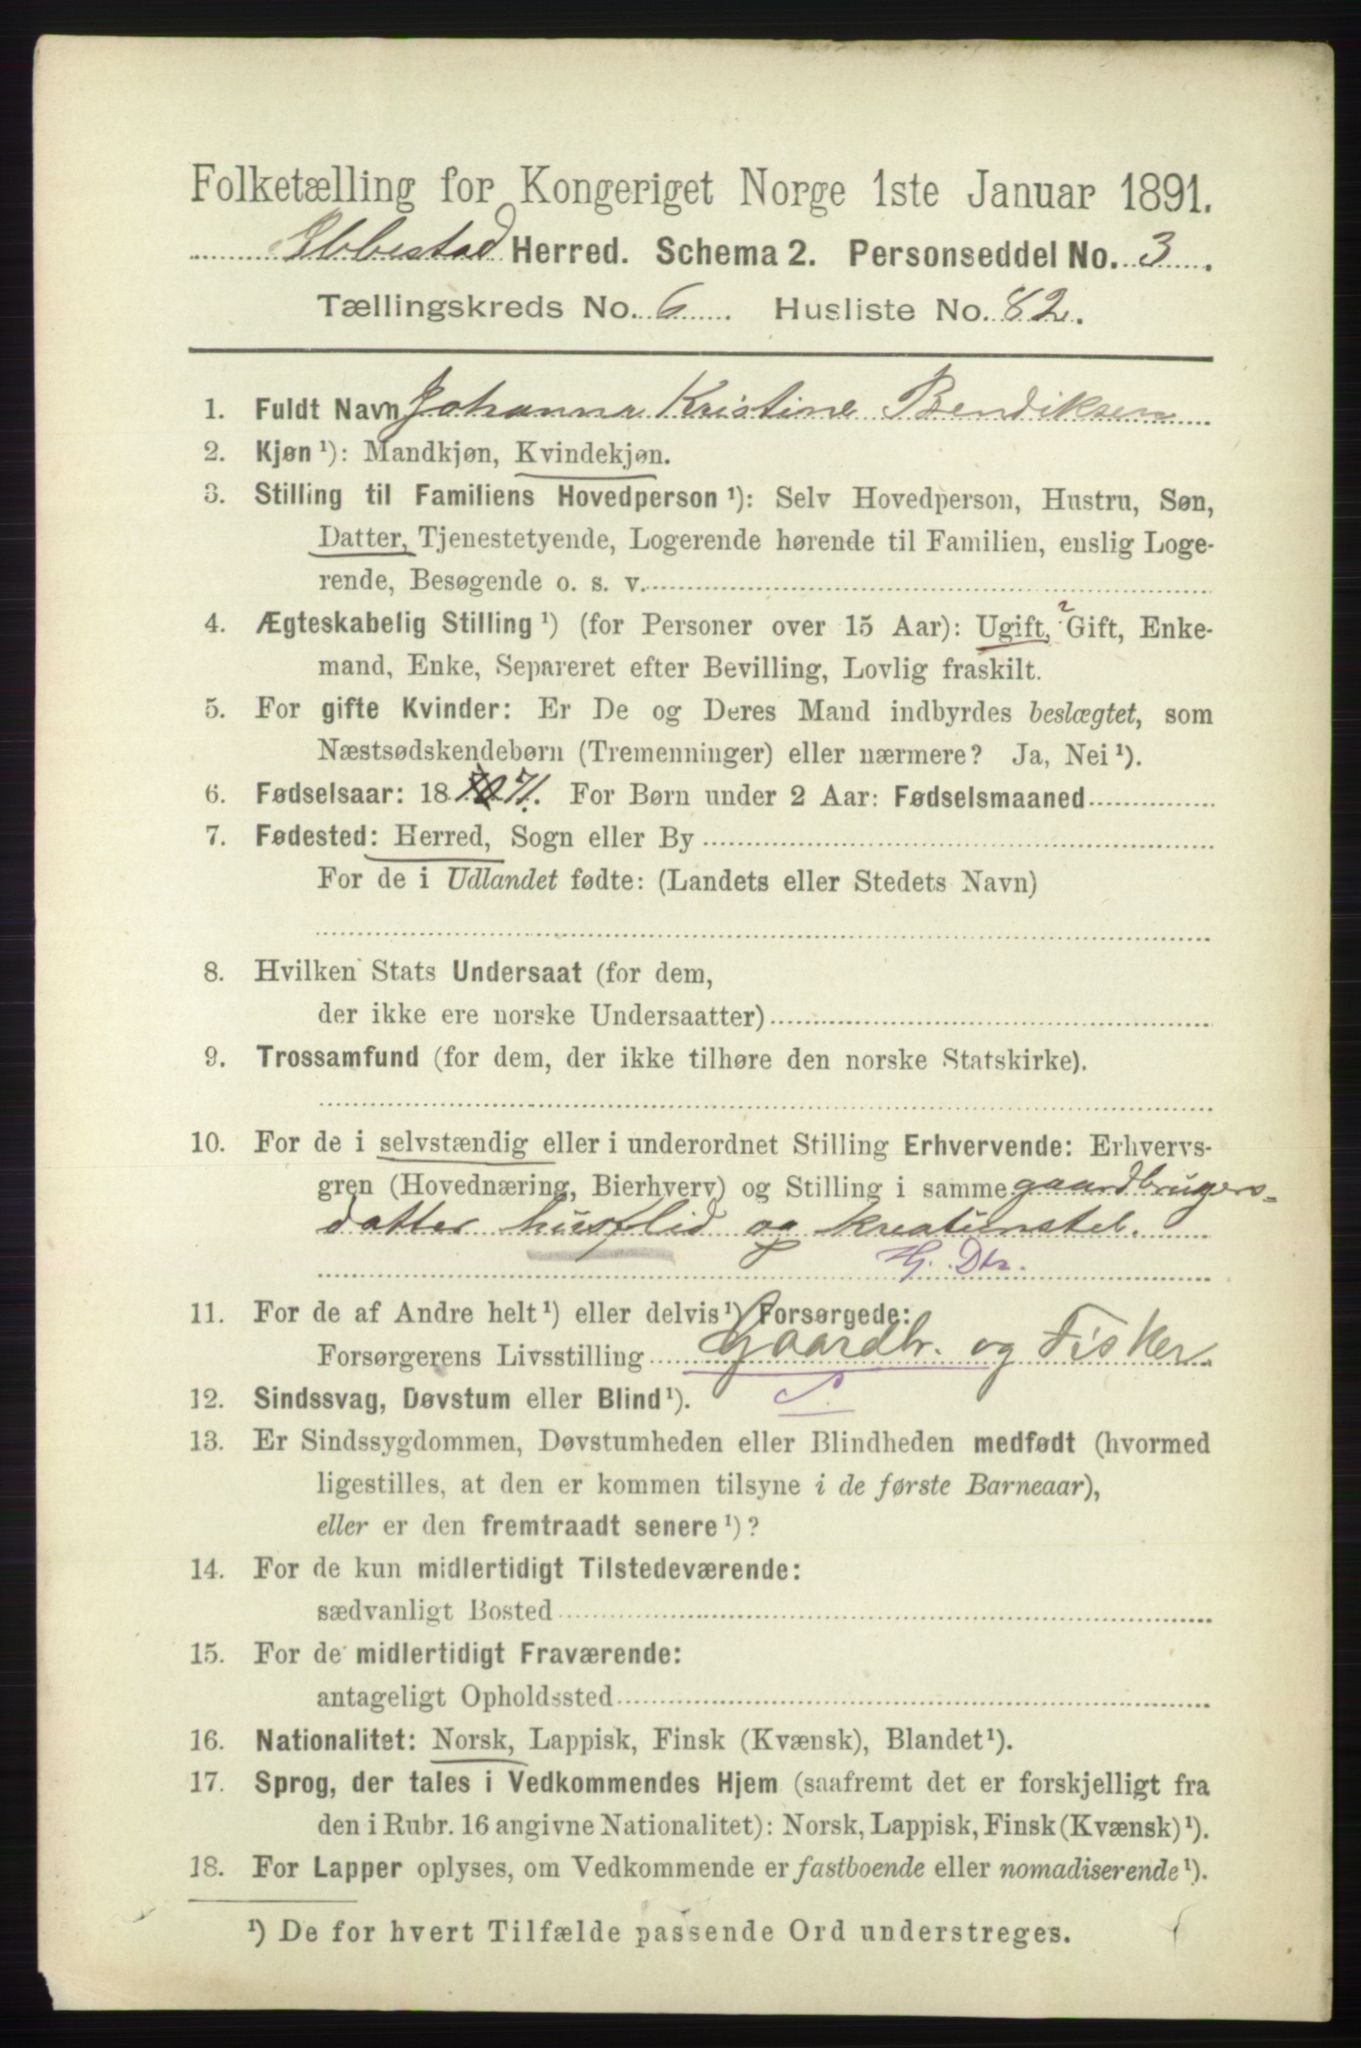 Folketælling for Kongeriget Norge 1ste Januar 1891.
Ibbestad Herred. Schema 2. Personseddel No. 3.
Tællingskreds No. 6. Husliste No. 82.
1. Fuldt Navn Johanna Kristine Bendiksen
2. Kjøn ¹): Mandkjøn, Kvindekjøn.
3. Stilling til Familiens Hovedperson ¹): Selv Hovedperson, Hustru, Søn,
Datter, Tjenestetyende, Logerende hørende til Familien, enslig Loge-
rende, Besøgende o. s. v.
4. Ægteskabelig Stilling ¹) (for Personer over 15 Aar): Ugift, Gift, Enke-
mand, Enke, Separeret efter Bevilling, Lovlig fraskilt.
5. For gifte Kvinder: Er De og Deres Mand indbyrdes beslægtet, som
Næstsødskendebørn (Tremenninger) eller nærmere? Ja, Nei ¹).
6. Fødselsaar: 18 70 71. For Børn under 2 Aar: Fødselsmaaned
7. Fødested: Herred, Sogn eller By
For de i Udlandet fødte: (Landets eller Stedets Navn)
8. Hvilken Stats Undersaat (for dem,
der ikke ere norske Undersaatter)
9. Trossamfund (for dem, der ikke tilhøre den norske Statskirke).
10. For de i selvstændig eller i underordnet Stilling Erhvervende: Erhvervs-
gren (Hovednæring, Bierhverv) og Stilling i samme gaardbrugers-
datter husflid og kreaturstel.
G. Dtr.
11. For de af Andre helt ¹) eller delvis ¹) Forsørgede:
Forsørgerens Livsstilling Gaardbr. og Fisker
12. Sindssvag, Døvstum eller Blind ¹). S.
13. Er Sindssygdommen, Døvstumheden eller Blindheden medfødt (hvormed
ligestilles, at den er kommen tilsyne i de første Barneaar),
eller er den fremtraadt senere ¹)?
14. For de kun midlertidigt Tilstedeværende:
sædvanligt Bosted
15. For de midlertidigt Fraværende:
antageligt Opholdssted
16. Nationalitet: Norsk, Lappisk, Finsk (Kvænsk), Blandet ¹).
17. Sprog, der tales i Vedkommendes Hjem (saafremt det er forskjelligt fra
den i Rubr. 16 angivne Nationalitet): Norsk, Lappisk, Finsk (Kvænsk) ¹).
18. For Lapper oplyses, om Vedkommende er fastboende eller nomadiserende ¹).
¹) De for hvert Tilfælde passende Ord understreges.